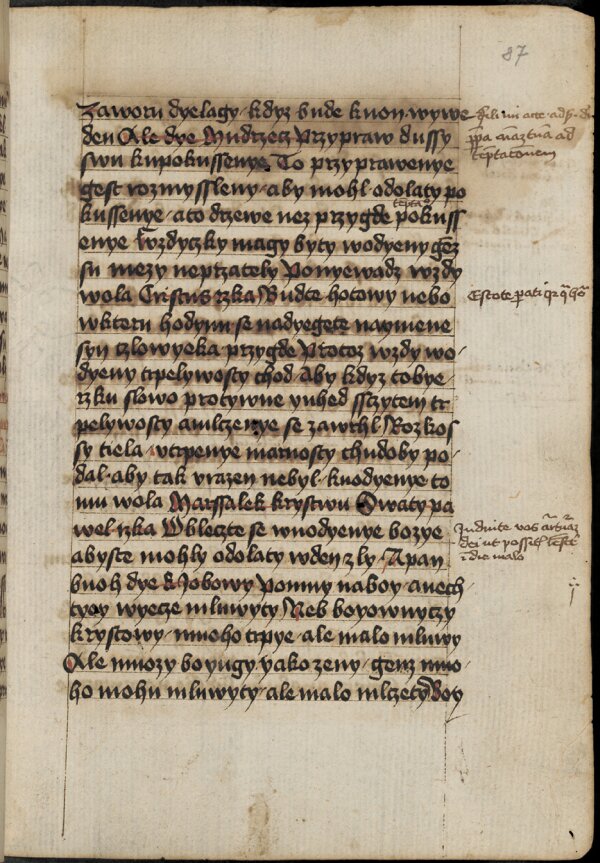 87
Zaworu dyelagy kdyz bude kuon wywe
den Ale dye Mudrzecz Przypraw dussy
swu kupokussenye To przyprawenye
gest rozmyssleny aby mohl odolaty po
kussenye ato drzewe nez przygde pokuss
enye Wzdyczky magy byty wodyeny gez
su mezy neprzately Ponyewadz wzdy
wola Cristus rzka Budte hotowy nebo
wkteru hodynu se nadyegete naymene
syn czlowyeka przygde Protoz wzdy wo
dyeny trpelywosty chod Aby kdyz tobye
rzku slowo protywne yuhed sczytem tr
pelywosty amlczenye se zawrhl Rozkos
sy tiela vtrpenye marnosty chudoby po
dal aby tak vrazen nebyl kuodyenye to
mu wola Marssalek krystwu Swaty pa
wel rzka Oblecte se wuodyenye bozye
abyste mohly odolaty wden zly A pan
buoh dye k Jobowy Pomny na boy a nech
tyoy wyecze mluwyty Neb boyownyczy
krystowy mnoho trpye ale malo mluwy
Ale mnozy boyugy yako zeny genz mno
ho mohu mluwyty ale malo mlczety Boy
fili mi
ad
temptacionem
Estote parati
Induite vos
dei ut
die malo